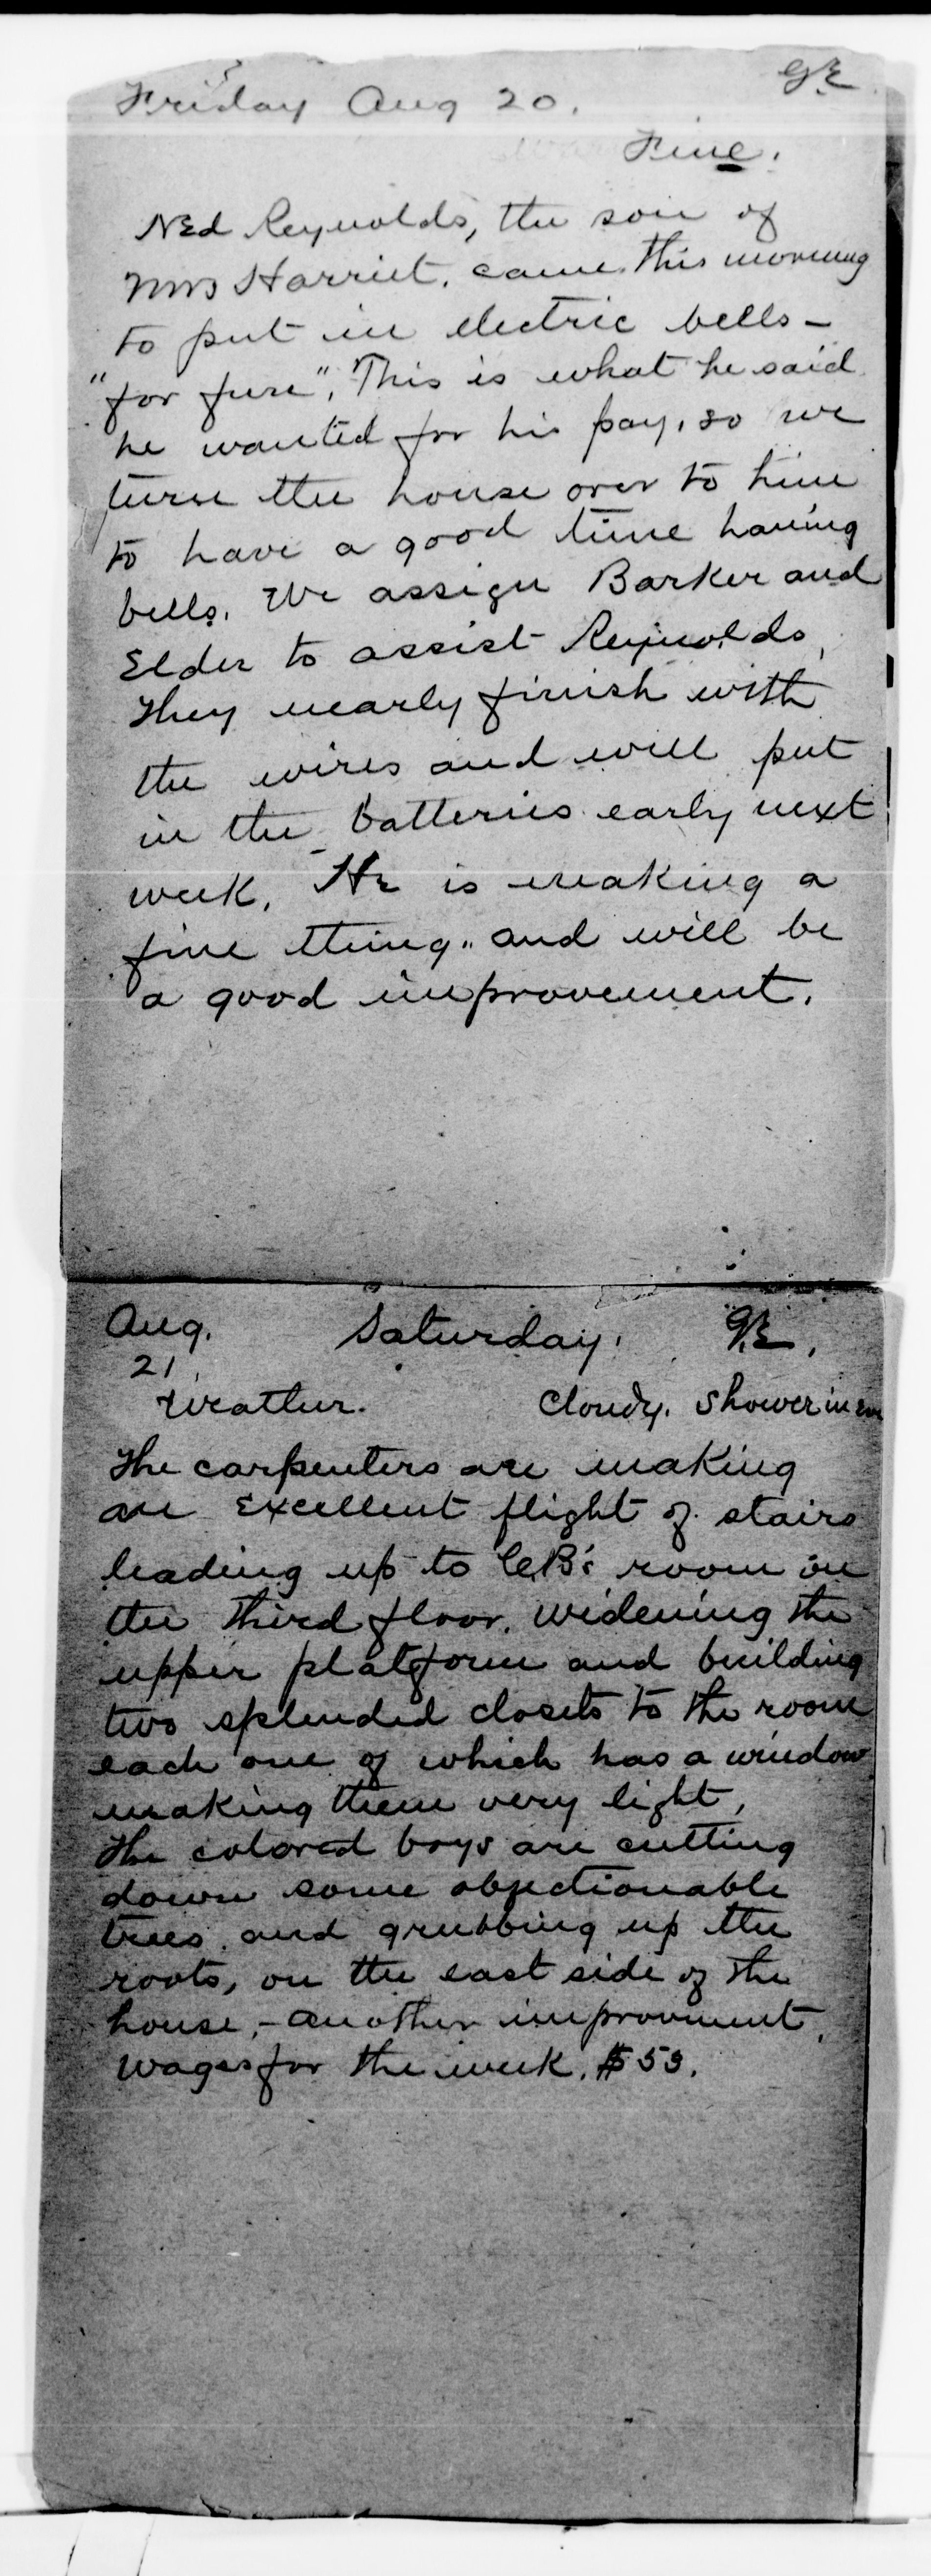 Friday Aug 20. G.E.
Fine.
Ned Reynolds, the son of
Mrs Harriet, came this morning
to put in electric bells -
"for fun". This is what he said
he wanted for his pay, so we
turn the house over to him
to have a good time having
bells. We assign Barker and
Elder to assist Reynolds,
They nearly finish with
the wires and will put
in the batteries early next
week. He is making a
fine thing" and will be
a good improvement.
Aug. Saturday. G.E.
21.
Weather. Cloudy. Shower in eve
The carpenters are making
an Excellent flight of stairs
leading up to C.B's room on
the third floor. widening the
upper platform and building
two splended closets to the room
each one of which has a window
making them very light,
The colored boys are cutting
down some objectionable
trees and grubbing up the
roots, on the east side of the
house, - another improvement,
Wages for the week. $53.